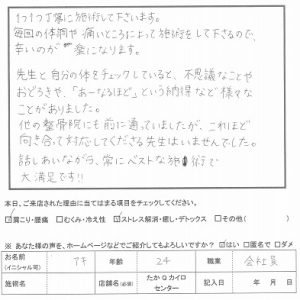 1つ1つ丁寧に施術して下さいます。
毎回の体調や痛いところによって施術をして下さるので、
辛いのが楽になります。
先生と自分の体をチェックしていると、不思議なことや
おどろきや、「あーなるほど」という納得など様々な
ことがありました。
他の整骨院にも前に通っていましたが、これほど
向き合って対応してくださる先生はいませんでした。
話しあいながら、常にベストな施術で
大満足です!!
本日、ご来店された理由に当てはまる項目をチェックしてください。
☑肩こり・腰痛 □むくみ・冷え性 ☑ストレス解消・癒し・デトックス □その他( )
※ あなた様の声を、ホームページなどでご紹介してもよろしいですか? ☑はい □匿名で □ダメ
お名前 (イニシャル可) アキ 年齢 24 職業 会社員
施術名 店舗名(必須) たかQカイロセンター 記入日 年 月 日